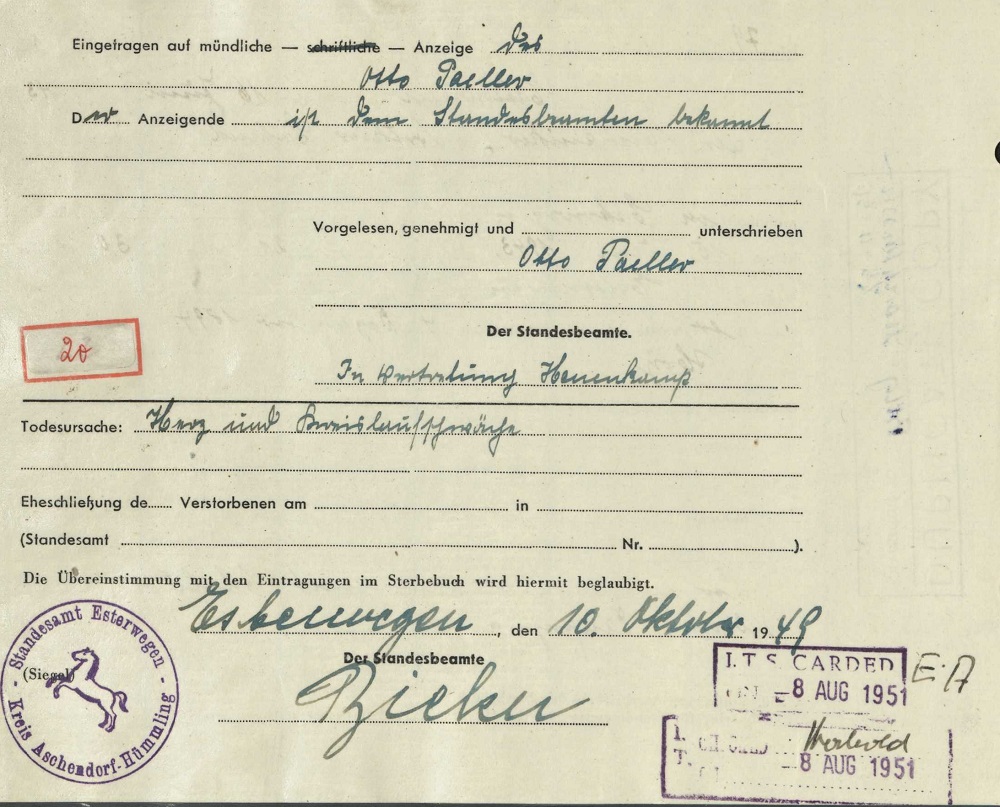 Eingetragen auf mündliche — schriftliche — Anzeige des
Otto Paeller
Der Anzeigende ist dem Standesbeamten bekannt
Vorgelesen, genehmigt und unterschrieben
Otto Paeller
Der Standesbeamte.
20
In Vertretung Hanenkamp
Todesursache: Herz und Kreislaufschwäche
Eheschließung de Verstorbenen am in
(Standesamt Nr. ).
Die Übereinstimmung mit den Eintragungen im Sterbebuch wird hiermit beglaubigt.
Esterwegen, den 10. Oktober 1949
Standesamt Esterwegen - Kreis Aschendorf-Hümmling -
(Siegel)
Der Standesbeamte
I.T.S. CARDED
8 AUG 1951
E.A
8 AUG 1951